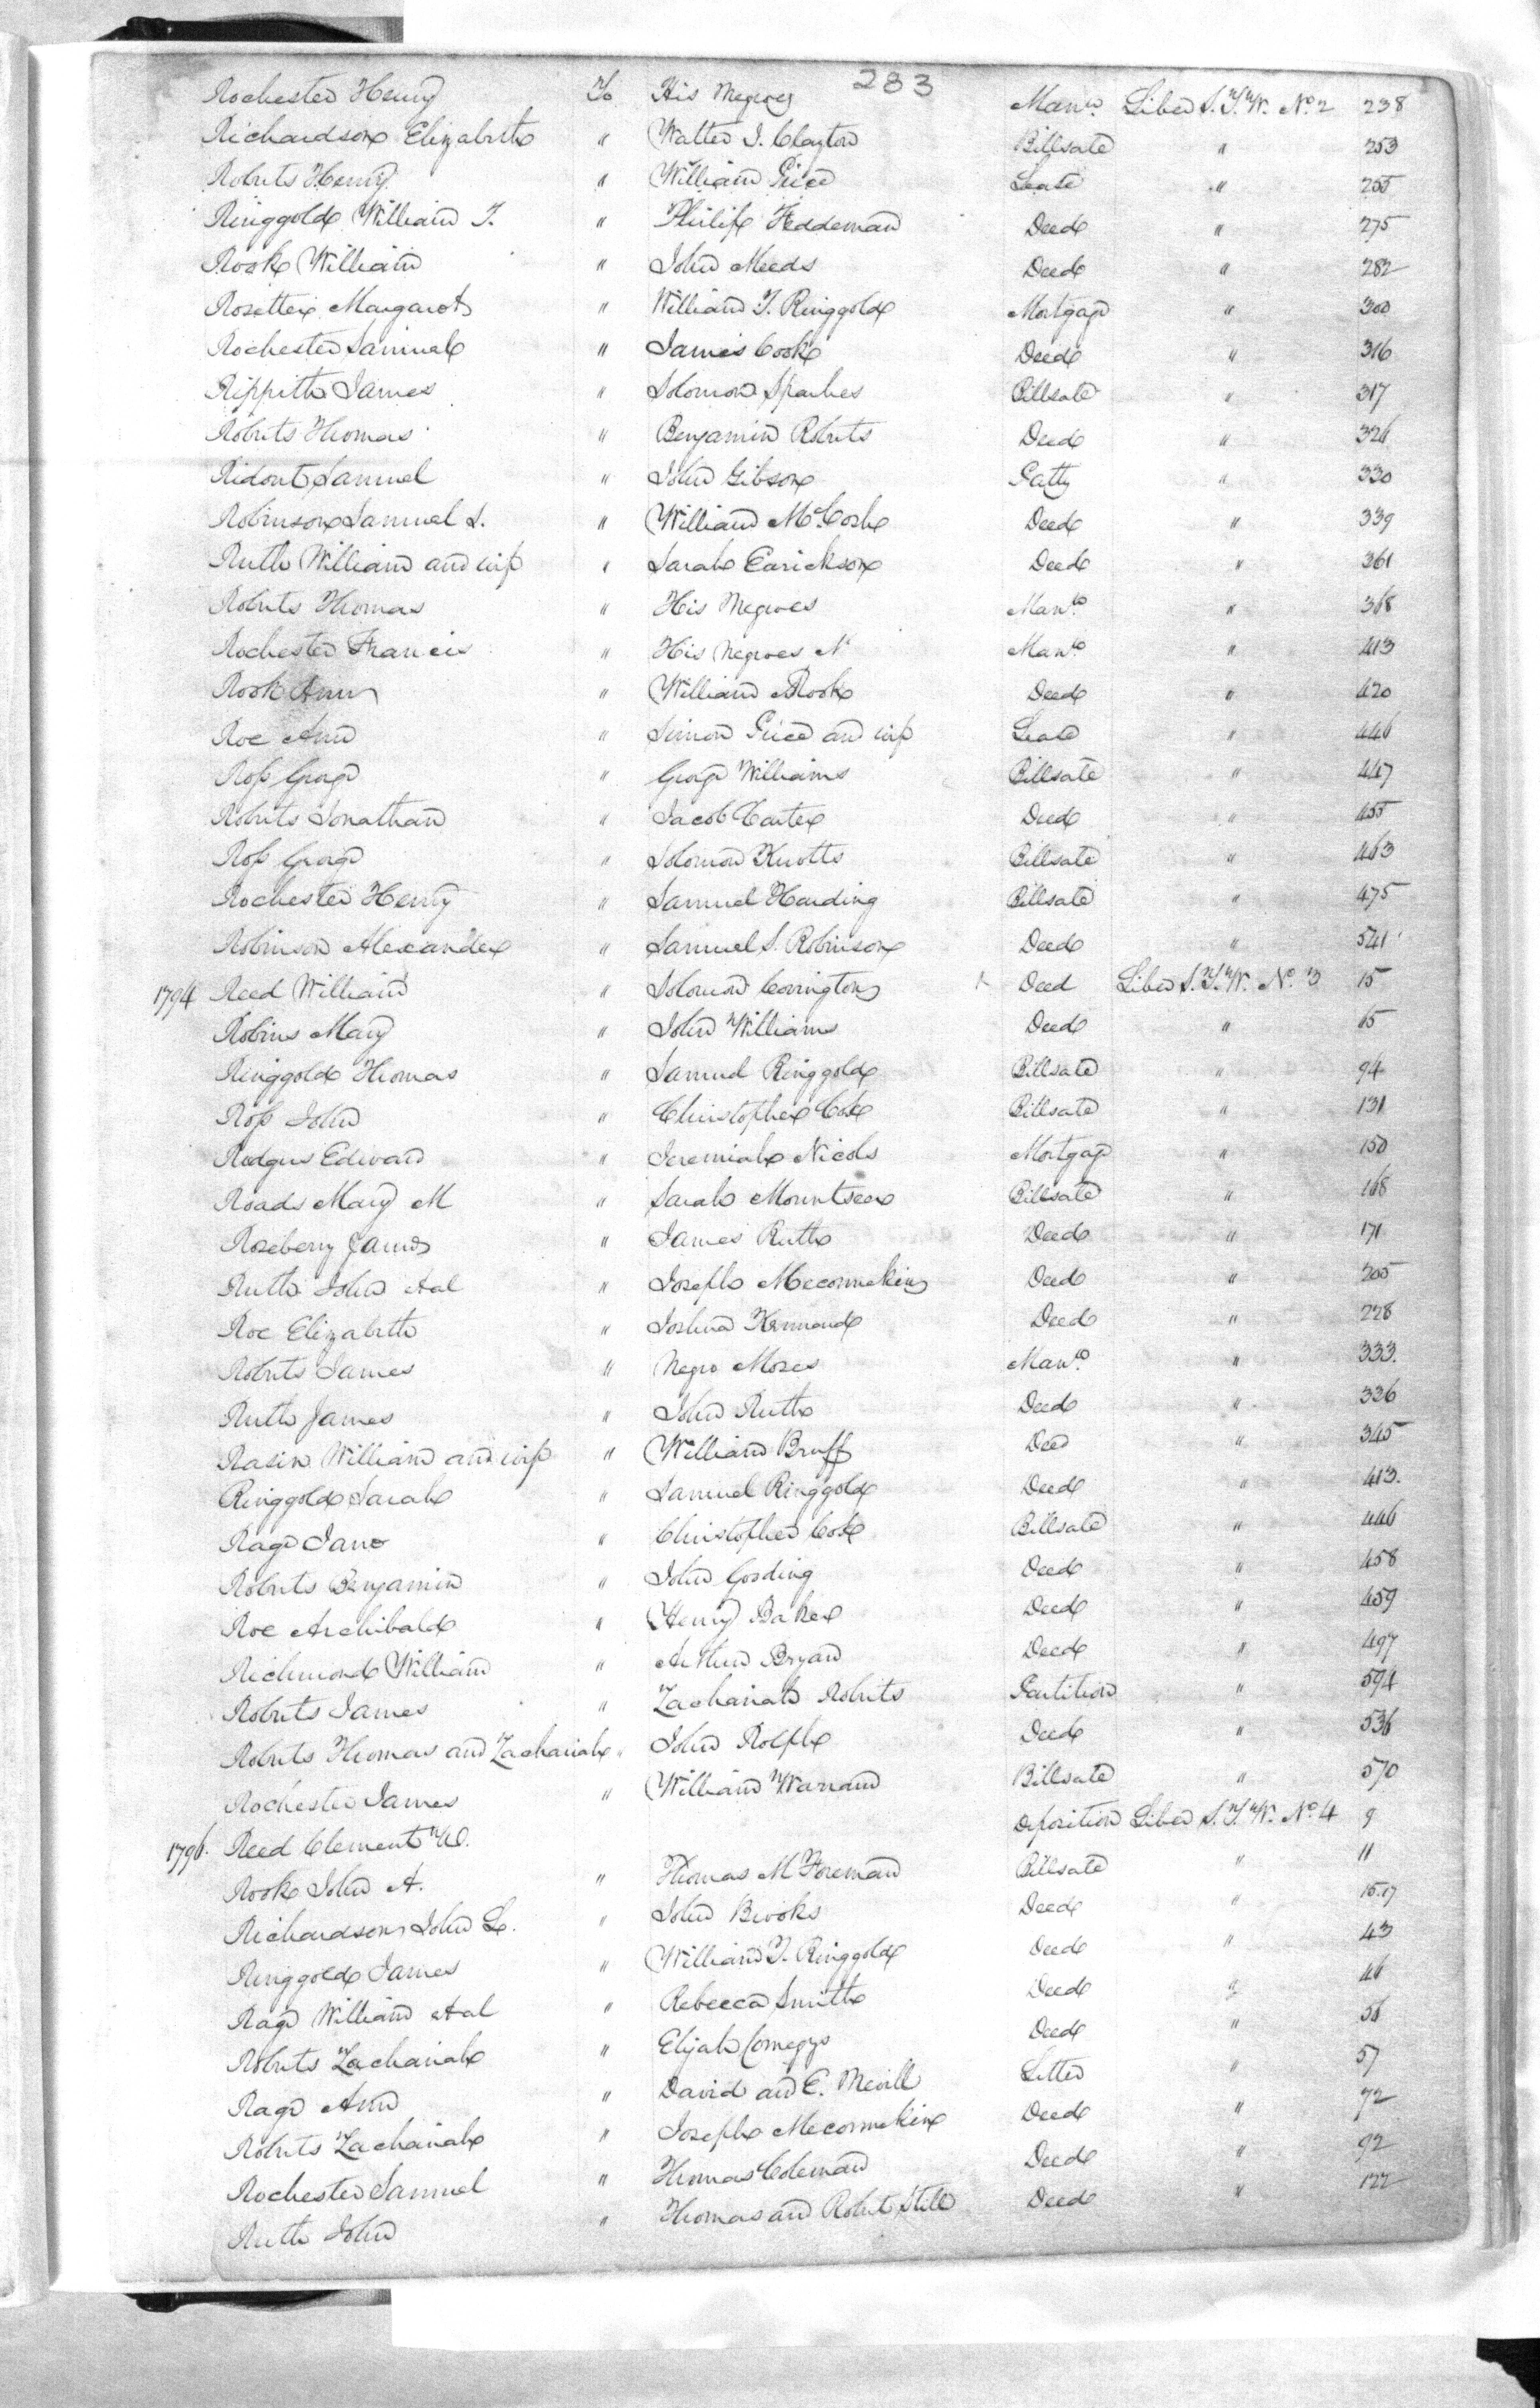 283
Rochester Henry To His Negroes Manu. Liber S.T.W. No. 2 238
Richardson Elizabeth " Walter J. Clayton Billsale " 253
Roberts Henry " William Price Lease " 255
Ringgold William T. " Philip Feddeman Deed " 275
Rook William " John Meeds Deed " 282
Margaret " William T. Ringgold Mortgage " 300
Rochester Samuel " James Cook Deed " 316
Rippith James " Solomon Sparkes Billsale " 317
Roberts Thomas " Benjamin Roberts Deed " 326
Ridout Samuel " John Gibson Patty " 330
Robinson Samuel S. " William McCosh Deed " 339
Ruth William and wife " Sarah Earickson Deed " 361
Roberts Thomas " His Negroes Manu. " 368
Rochester Francis " His Negroes N Manu. " 413
Rook Ann " William Rook Deed " 420
Roe Ann " Simon Price and wife Lease " 446
Ross George " George Williams Billsale " 447
Roberts Jonathan " Jacob Carter Deed " 455
Ross George " Solomon Knotts Billsale " 463
Rochester Henry " Samuel Harding Billsale " 475
Robinson Alexander " Samuel S. Robinson Deed " 541
1794 Reed William " Solomon Corrington Deed Liber S.T.W. No. 3 15
Robins Mary " John Williams Deed " 65
Ringgold Thomas " Samuel Ringgold Billsale " 94
Ross John " Christopher Cox Billsale " 131
Rodgers Edward " Jeremiah Nicols Mortgage " 150
Roads Mary M " Sarah Mountseer Billsale " 168
Roseberry James " James Ruth Deed " 171
Ruth John &al " Joseph Meconnekin Deed " 205
Roe Elizabeth " Joshua Kennard Deed " 228
Roberts James " Negro Moses Manu. " 333.
Ruth James " John Ruth Deed " 336
Rasin William and wife " William Bruff Deed " 345
Ringgold Sarah " Samuel Ringgold Deed " 413.
Rage Jane " Christopher Cox Billsale " 446
Roberts Benjamin " John Gosding Deed " 458
Roe Archibald " Henry Baker Deed " 459
Richmond William " Arthur Bryan Deed " 497
Roberts James " Zachariah Roberts Partition " 594
Roberts Thomas and Zachariah " John Rolph Deed " 536
Rochester James " William Warram Billsale " 570
1796. Reed Clement W. Deposition Liber S.T.W. No. 4 9
Rook John A. " Thomas M Foreman Billsale " 11
Richardson John L. " John Brooks Deed " 15.17
Ringgold James " William T. Ringgold Deed " 43
Rage William &al " Rebecca Smith Deed " 46
Roberts Zachariah " Elijah Comegys Deed " 56
Rage Ann " David and E. Mevill Letter " 57
Roberts Zachariah " Joseph Meconnekin Deed " 72
Rochester Samuel " Thomas Coleman Deed " 92
Ruth John " Thomas and Robert Still Deed " 122